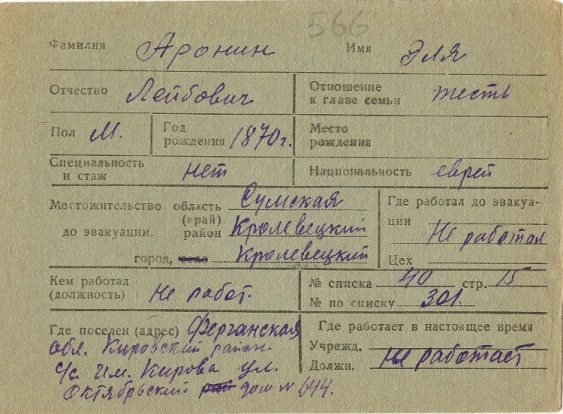 566
Фамилия Аронин Имя Эля
Отчество Лейбович Отношение к главе семьи тесть
Пол М. Год рождения 1870г. Место рождения
Специальность и стаж нет Национальность еврей
Местожительство до эвакуации. область (край) Сумская
район Кролевецкий
город, село Кролевецкий
Где работал до эвакуации Не работал
Цех
Кем работал (должность) Не работ.
№ списка 40 стр. 15
№ по списку 301.
Где поселен (адрес) Ферганская
обл. Кировский район
с/с им. Кирова ул.
Октябрьский дом №
Где работает в настоящее время
Учрежд. Не работает
Должн.